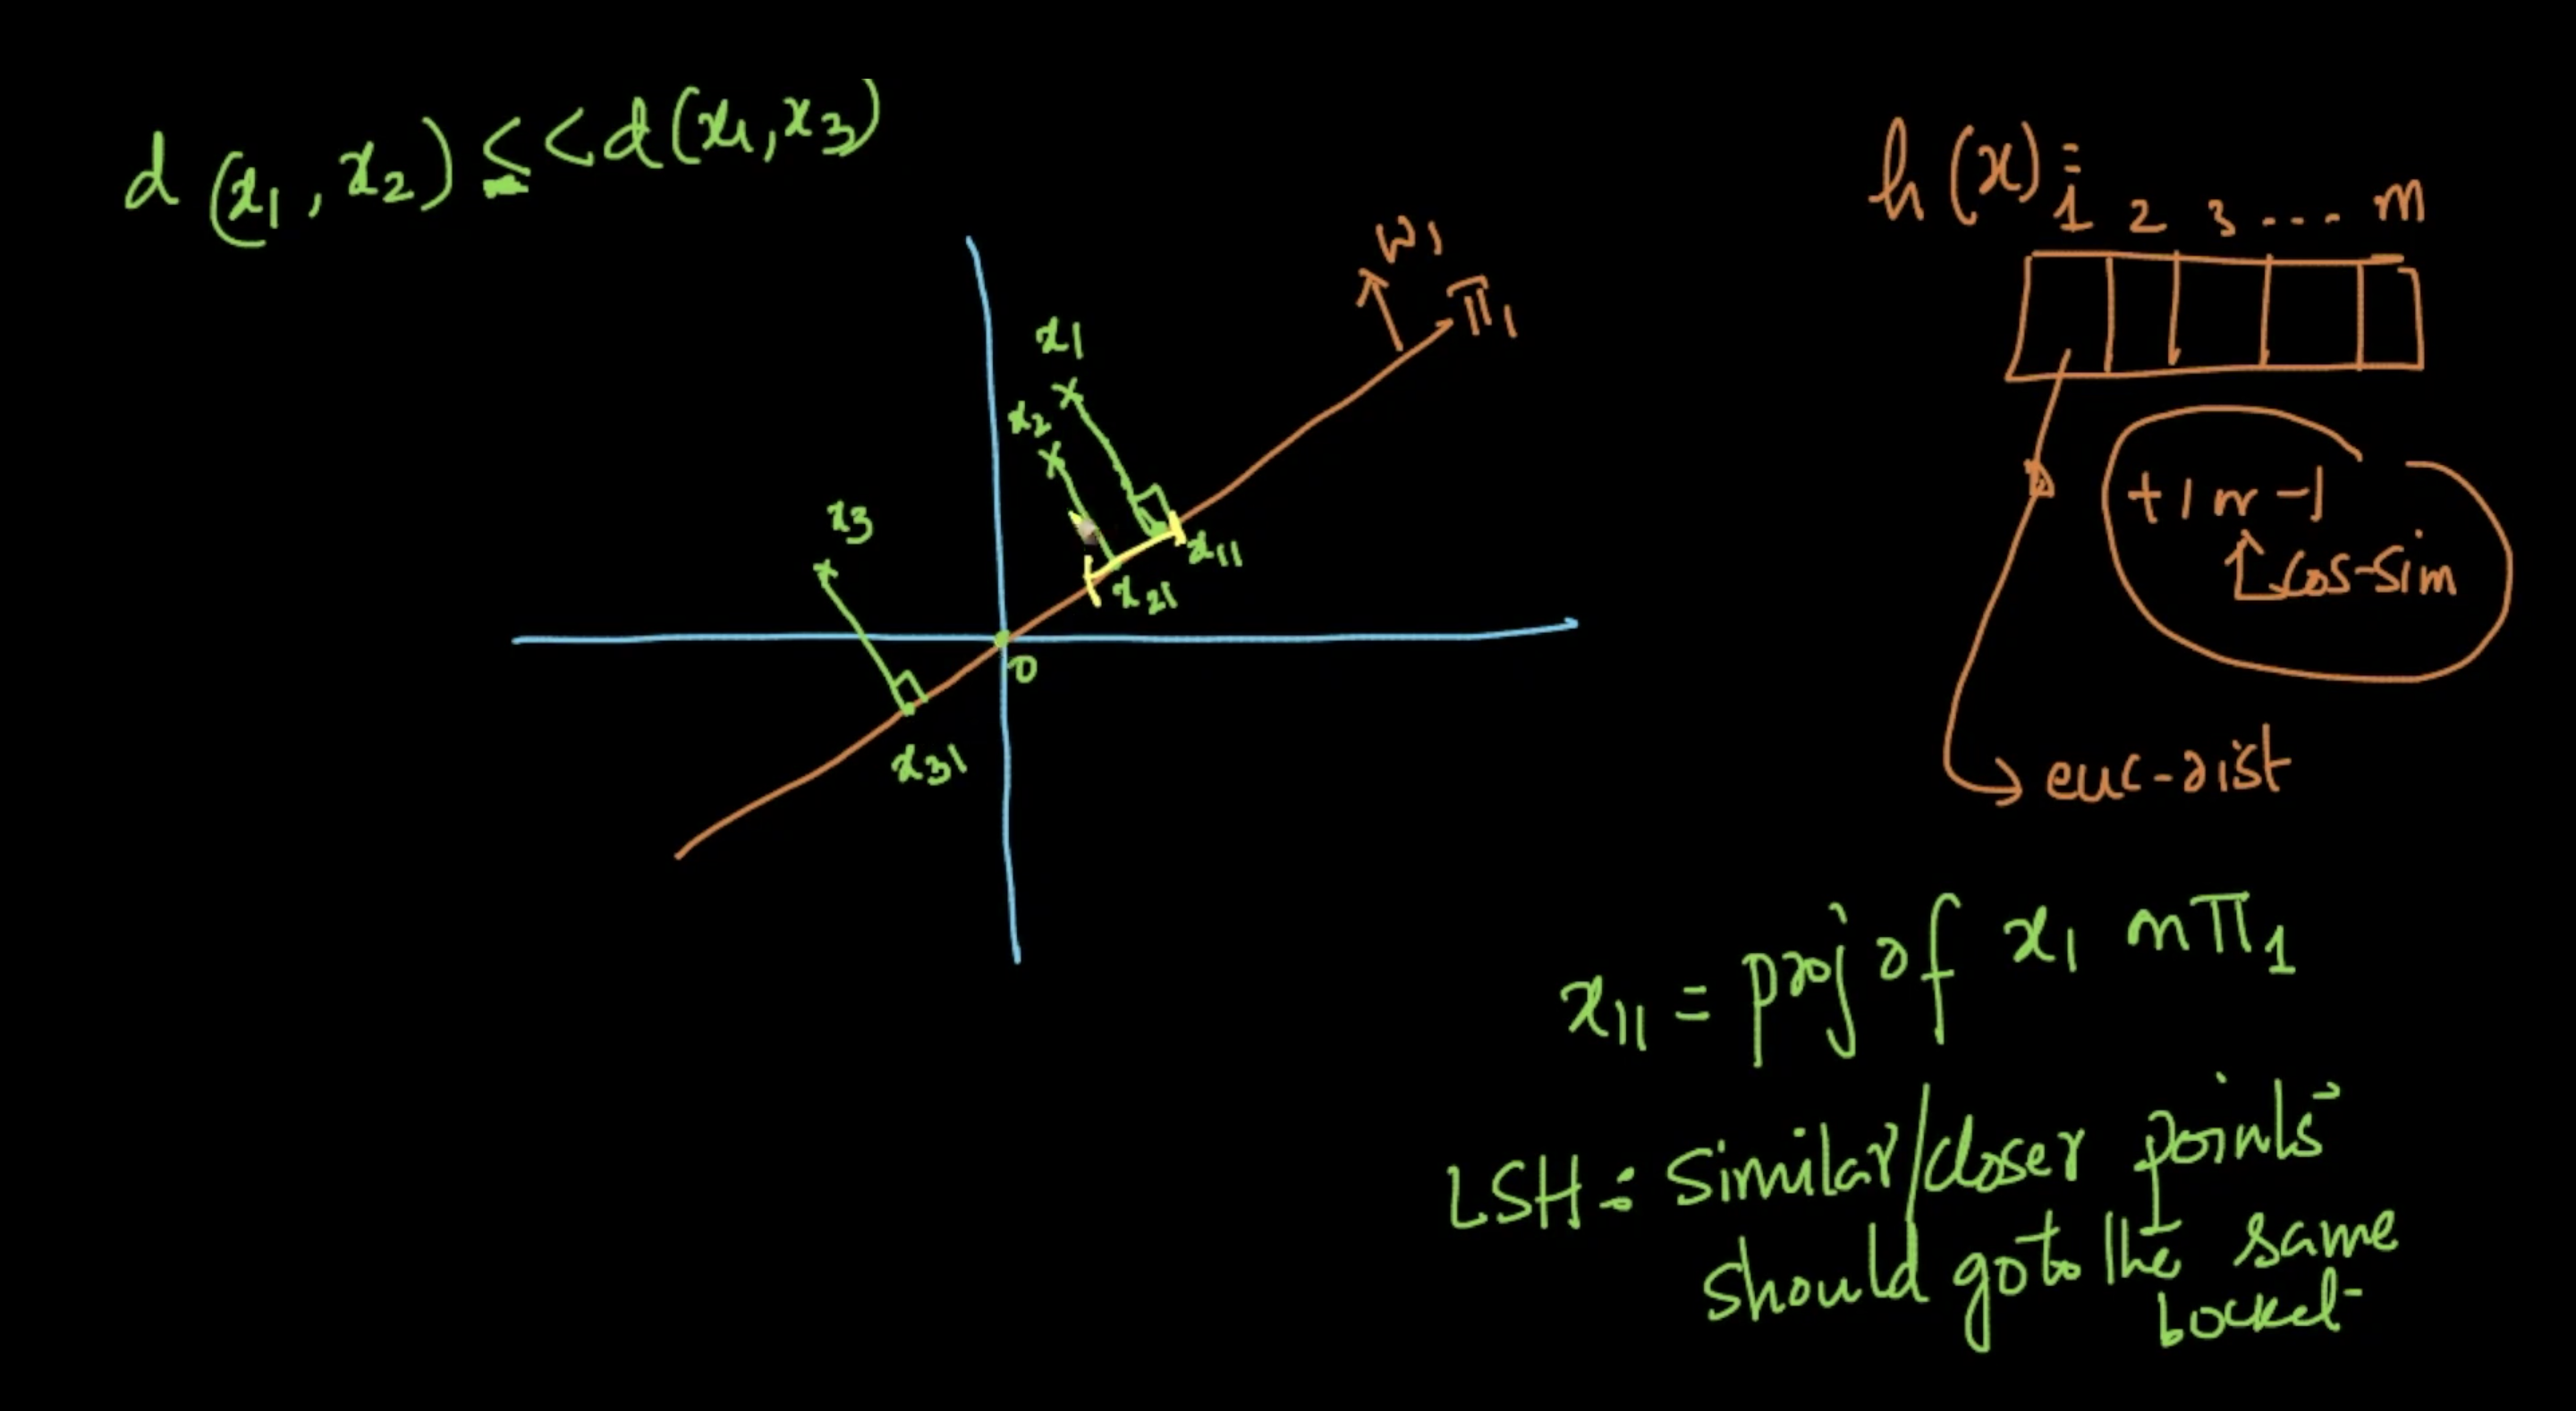 d(x1, x2) ≤ < d(x1, x3)
h(x) =
1 2 3 ... m
w1
π1
x1
x2
x3
x11
x21
x31
0
+1 or -1
cos-sim
euc-dist
x11 = proj of x1 on π1
LSH: Similar/closer points
should go to the same
bocket